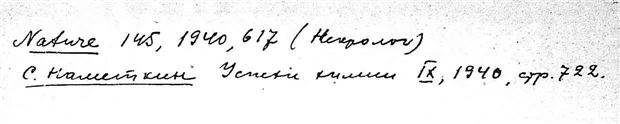 Nature 145, 1940, 617 (Некролог)
С. Наметкин Успехи химии IX, 1940, стр. 722.